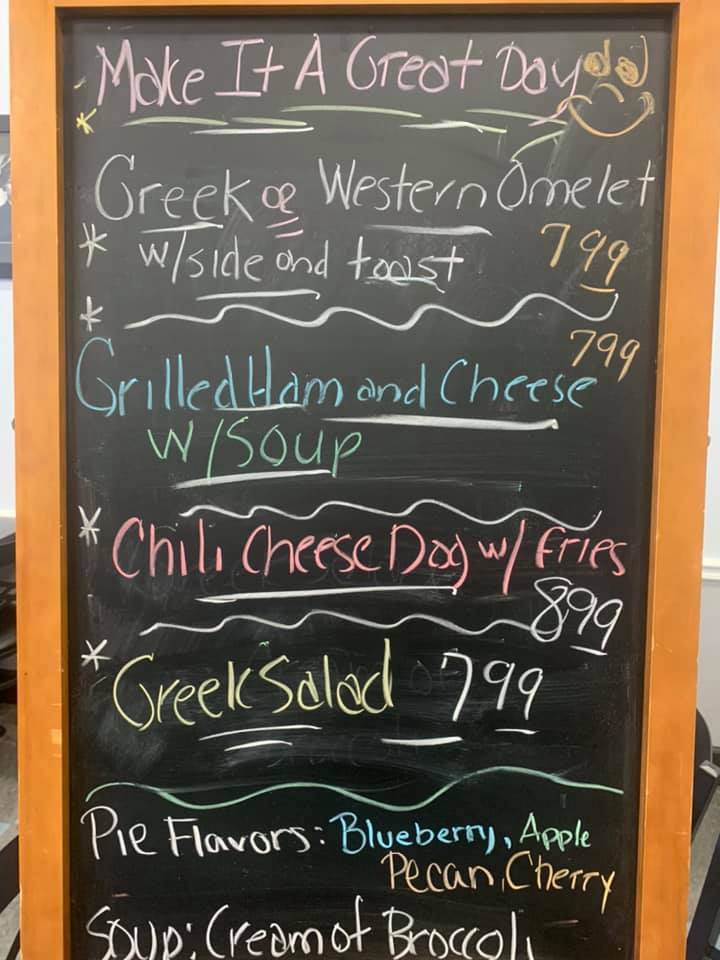 Make It A Great Day
Greek or Western Omelet
* w/side and toast 799
* 799
Grilled Ham and Cheese
W/SOUP
* Chili Cheese Dog w/ Fries
899
* Greek Salad 799
Pie Flavors: Blueberry, Apple
Pecan, Cherry
Soup: Cream of Broccoli